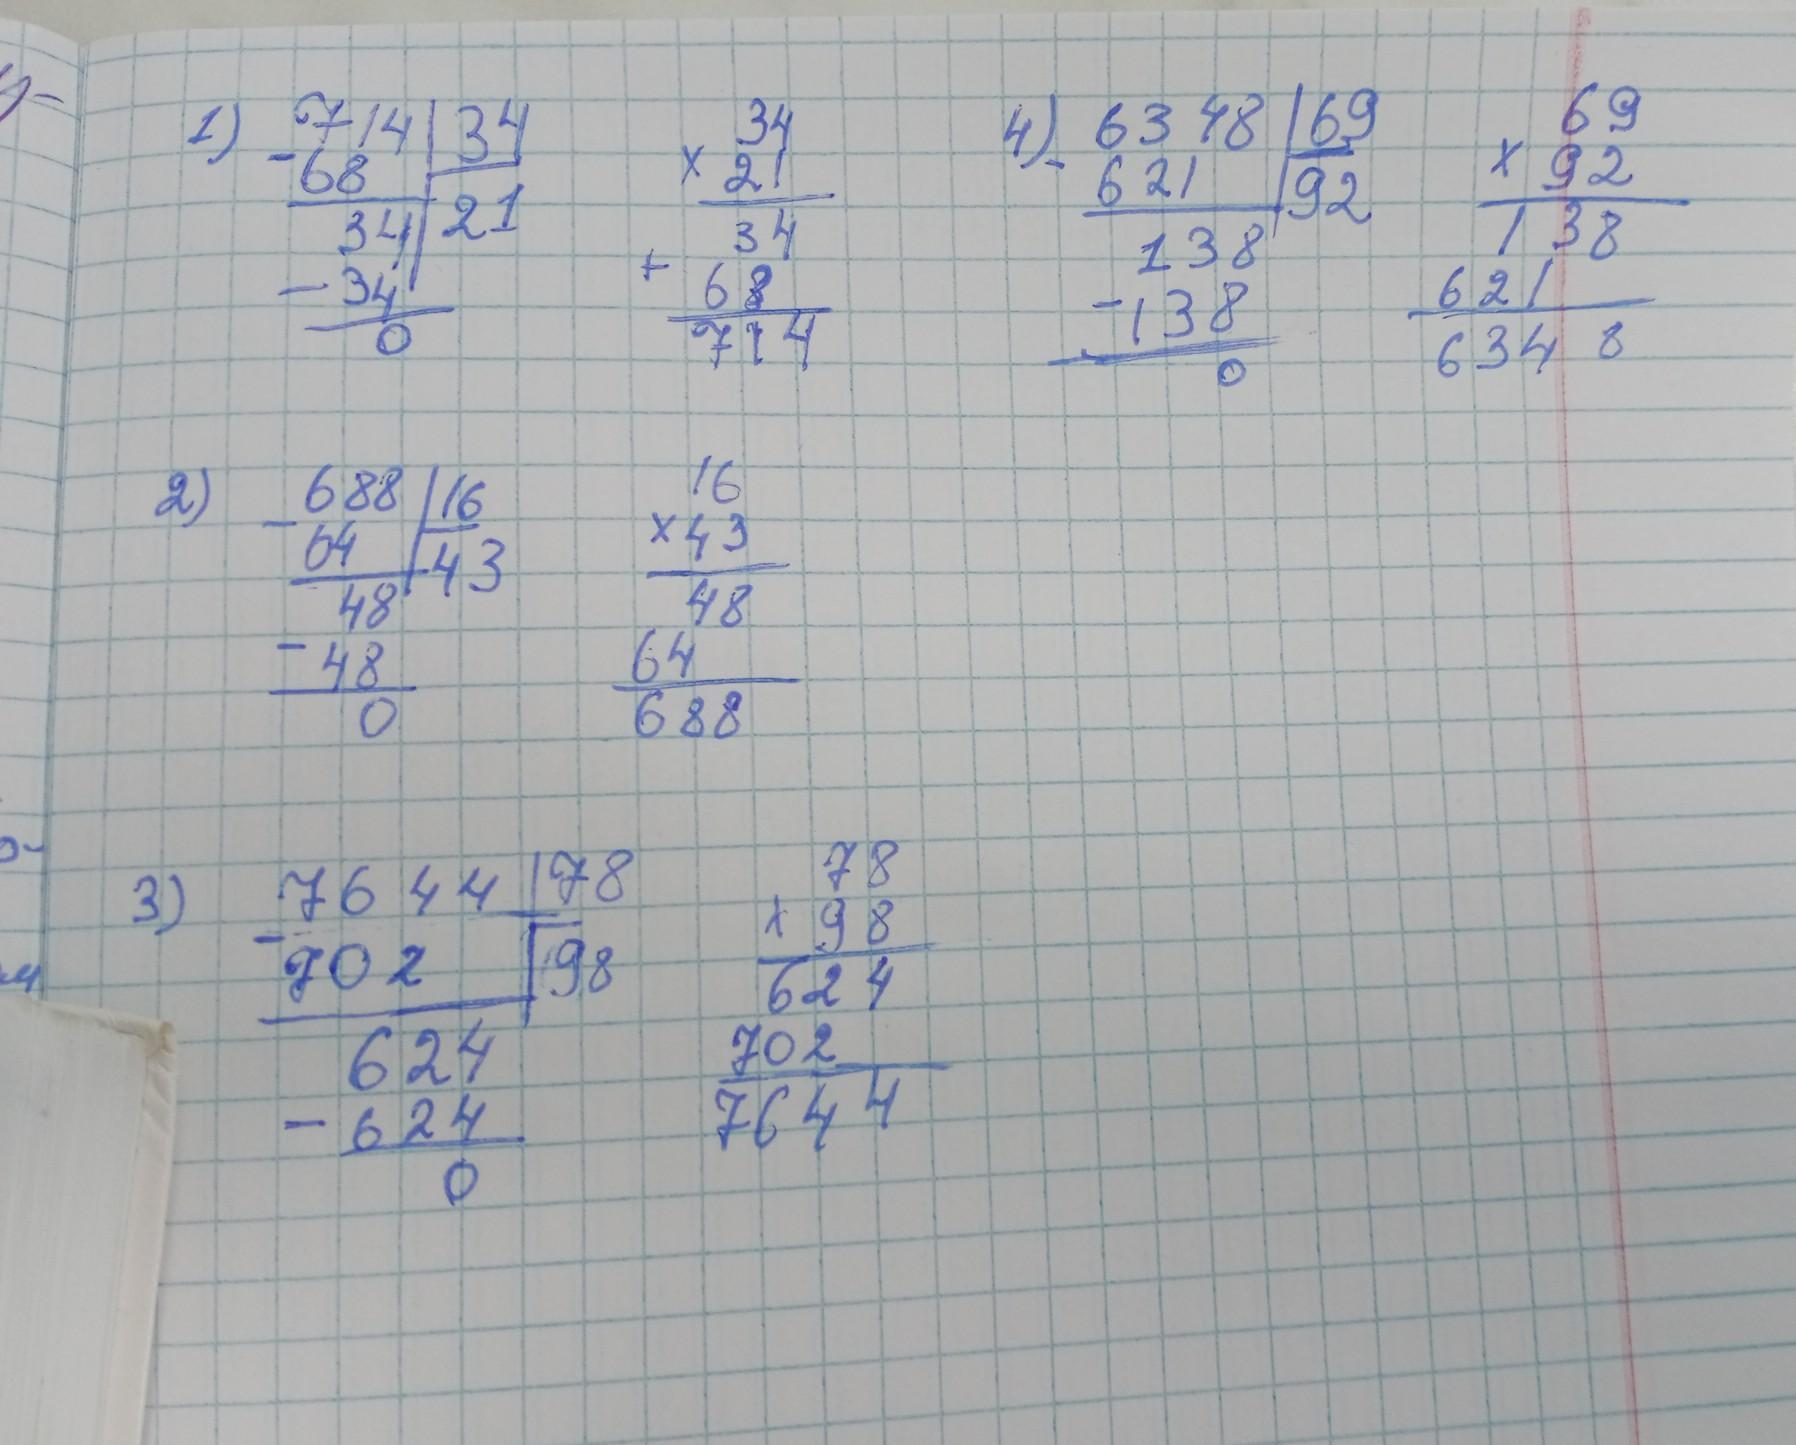 1) - 714 | 34
68
21
34
- 34
0
34
x 21
34
+ 68
714
4) - 6348 | 69
621
92
138
- 138
0
69
x 92
138
621
6348
2) - 688 | 16
64
43
48
- 48
0
16
x 43
48
64
688
3) - 7644 | 78
702
98
624
- 624
0
78
x 98
624
702
7644